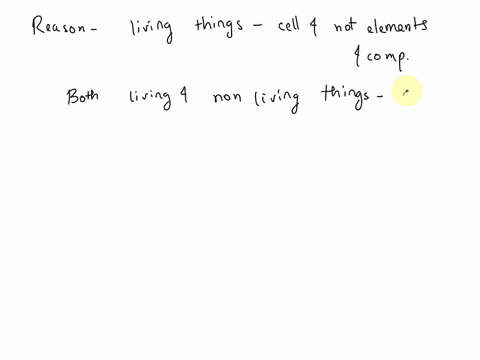 Reason - living things - cell & not elements
& comp.
Both living & non living things -